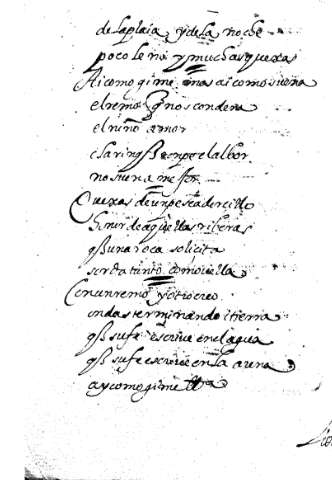 de la plaia y de la noche
poco leño y muchas quexas
Ai como gime mas ai como suena
el remo q̃ nos condena
el niño amor
clarin q̃ rompe el albor
no suena mejor
Quexas de un pescadorcillo
honor de aquellas riberas
q̃ una roca solicita
sorda tanto como vella
Con un remo y otro creo
ondas terminando i tierra
q̃ su fe escrive en el agua
q̃ su fe escrive en la arena
ay como gime